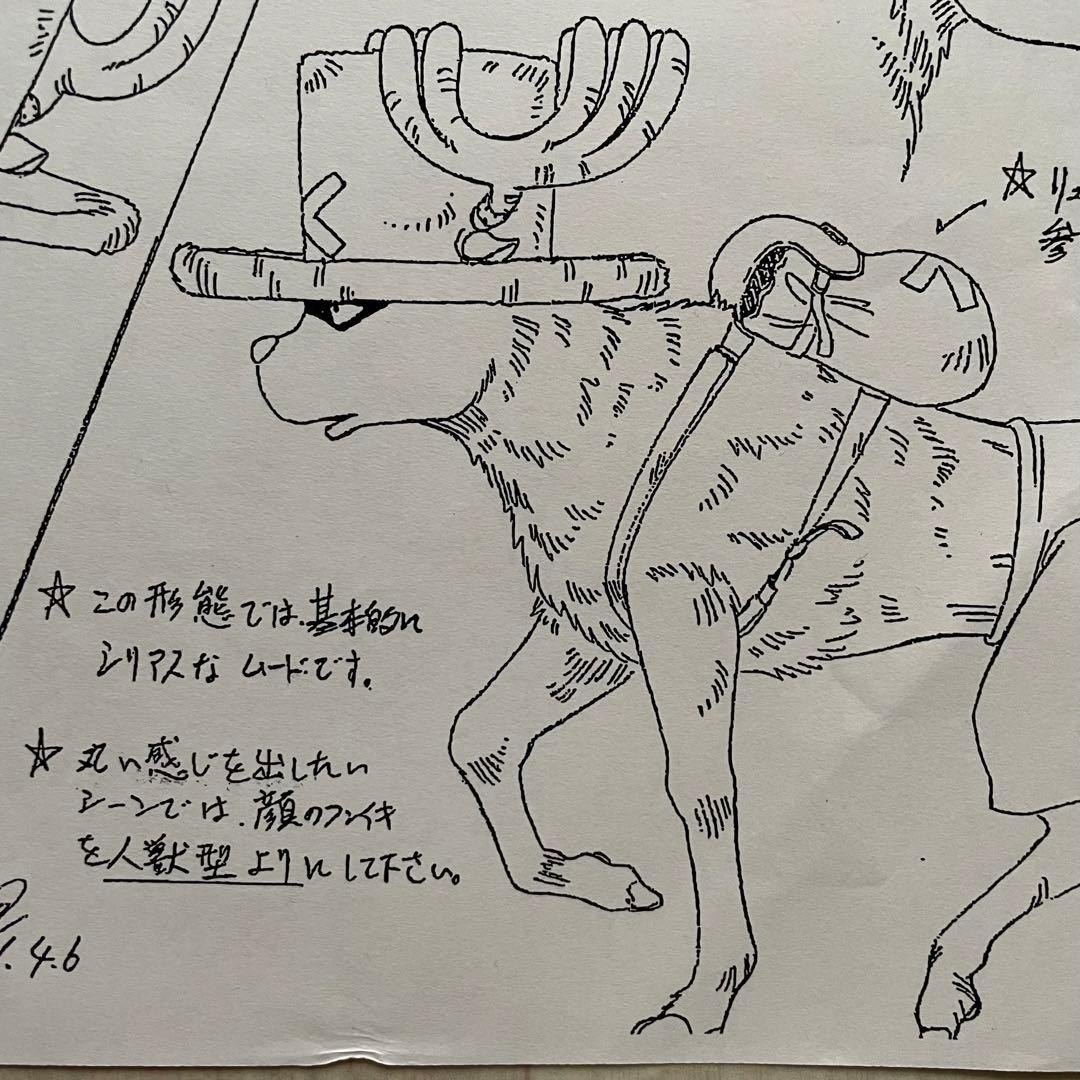 ☆ リュ
参
☆ この形態では、基本的に
シリアスな ムードです。
☆ 丸い感じを出したい
シーンでは、顔のフンイキ
を人獣型よりにして下さい。
.4.6